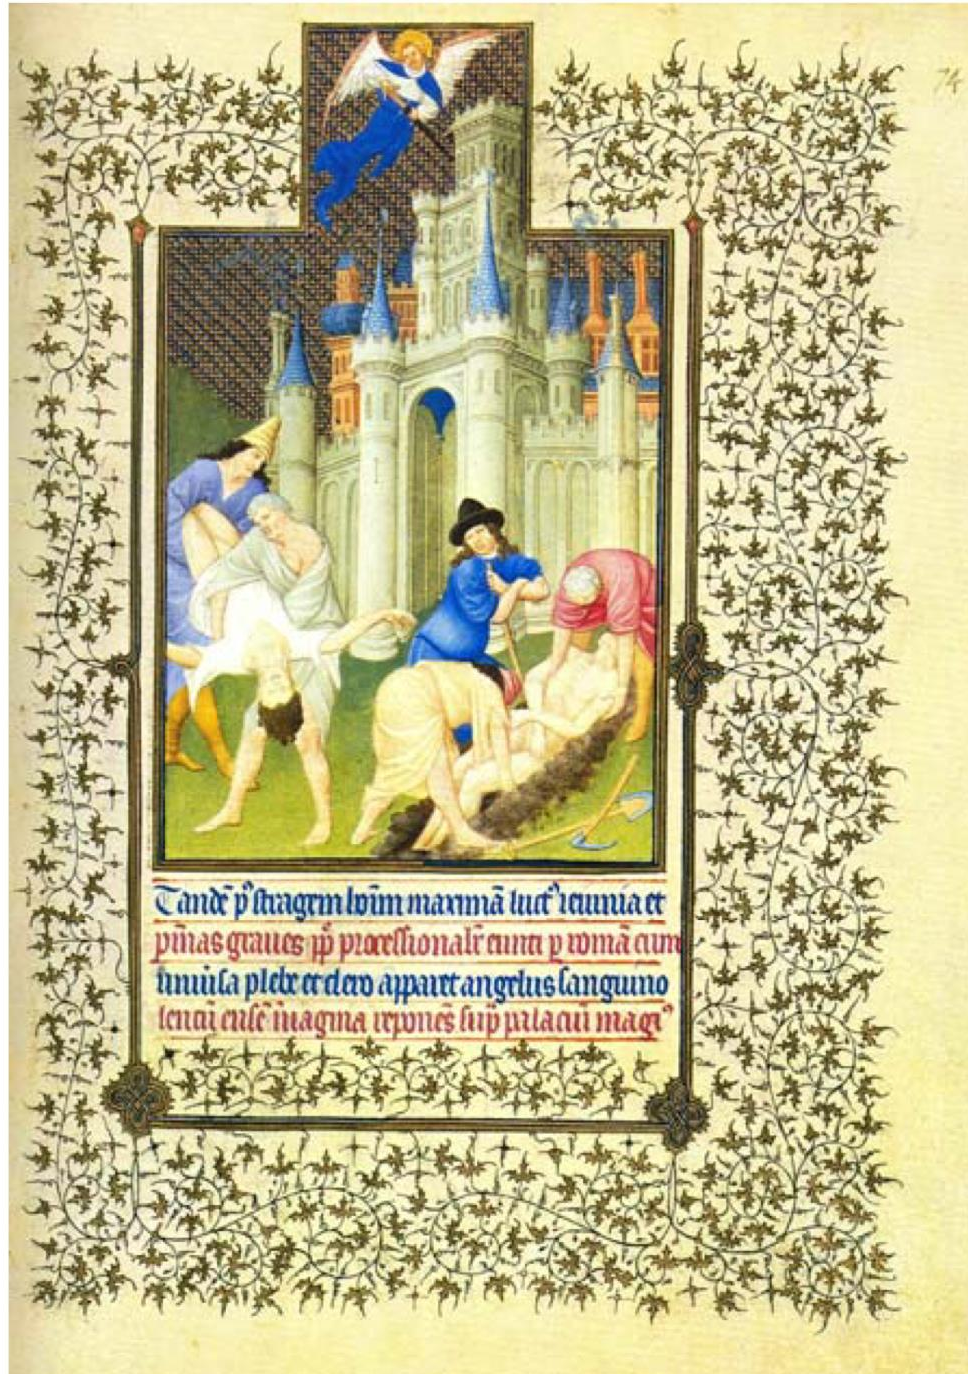 74
Tandē p⁹ stragem hoīm maximā luct⁹ ieiunia et
p̄nias graues pp̄ processionalr̄ eunti p romā cum
vniuersa plebe et clero apparet angelus sanguino
lentū ensē in vagina reponēs sup̄ palaciū magi⁹